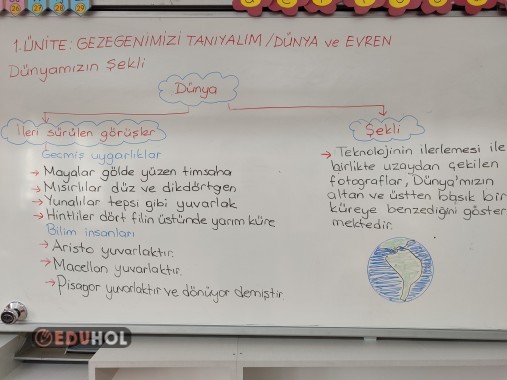 26 27 28 29
1.ÜNİTE: GEZEGENİMİZİ TANIYALIM /DÜNYA ve EVREN
Dünyamızın Şekli
Dünya
İleri sürülen görüşler
Geçmiş uygarlıklar
→ Mayalar gölde yüzen timsaha
→ Mısırlılar düz ve dikdörtgen
→ Yunalılar tepsi gibi yuvarlak
→ Hintliler dört filin üstünde yarım küre
Bilim insanları
→ Aristo yuvarlaktır.
→ Macellan yuvarlaktır.
→ Pisagor yuvarlaktır ve dönüyor demiştir
Şekli
→ Teknolojinin ilerlemesi ile
birlikte uzaydan çekilen
fotograflar, Dünya'mızın
altan ve üstten basık bir
küreye benzediğini göster
mektedir.
EDUHOL